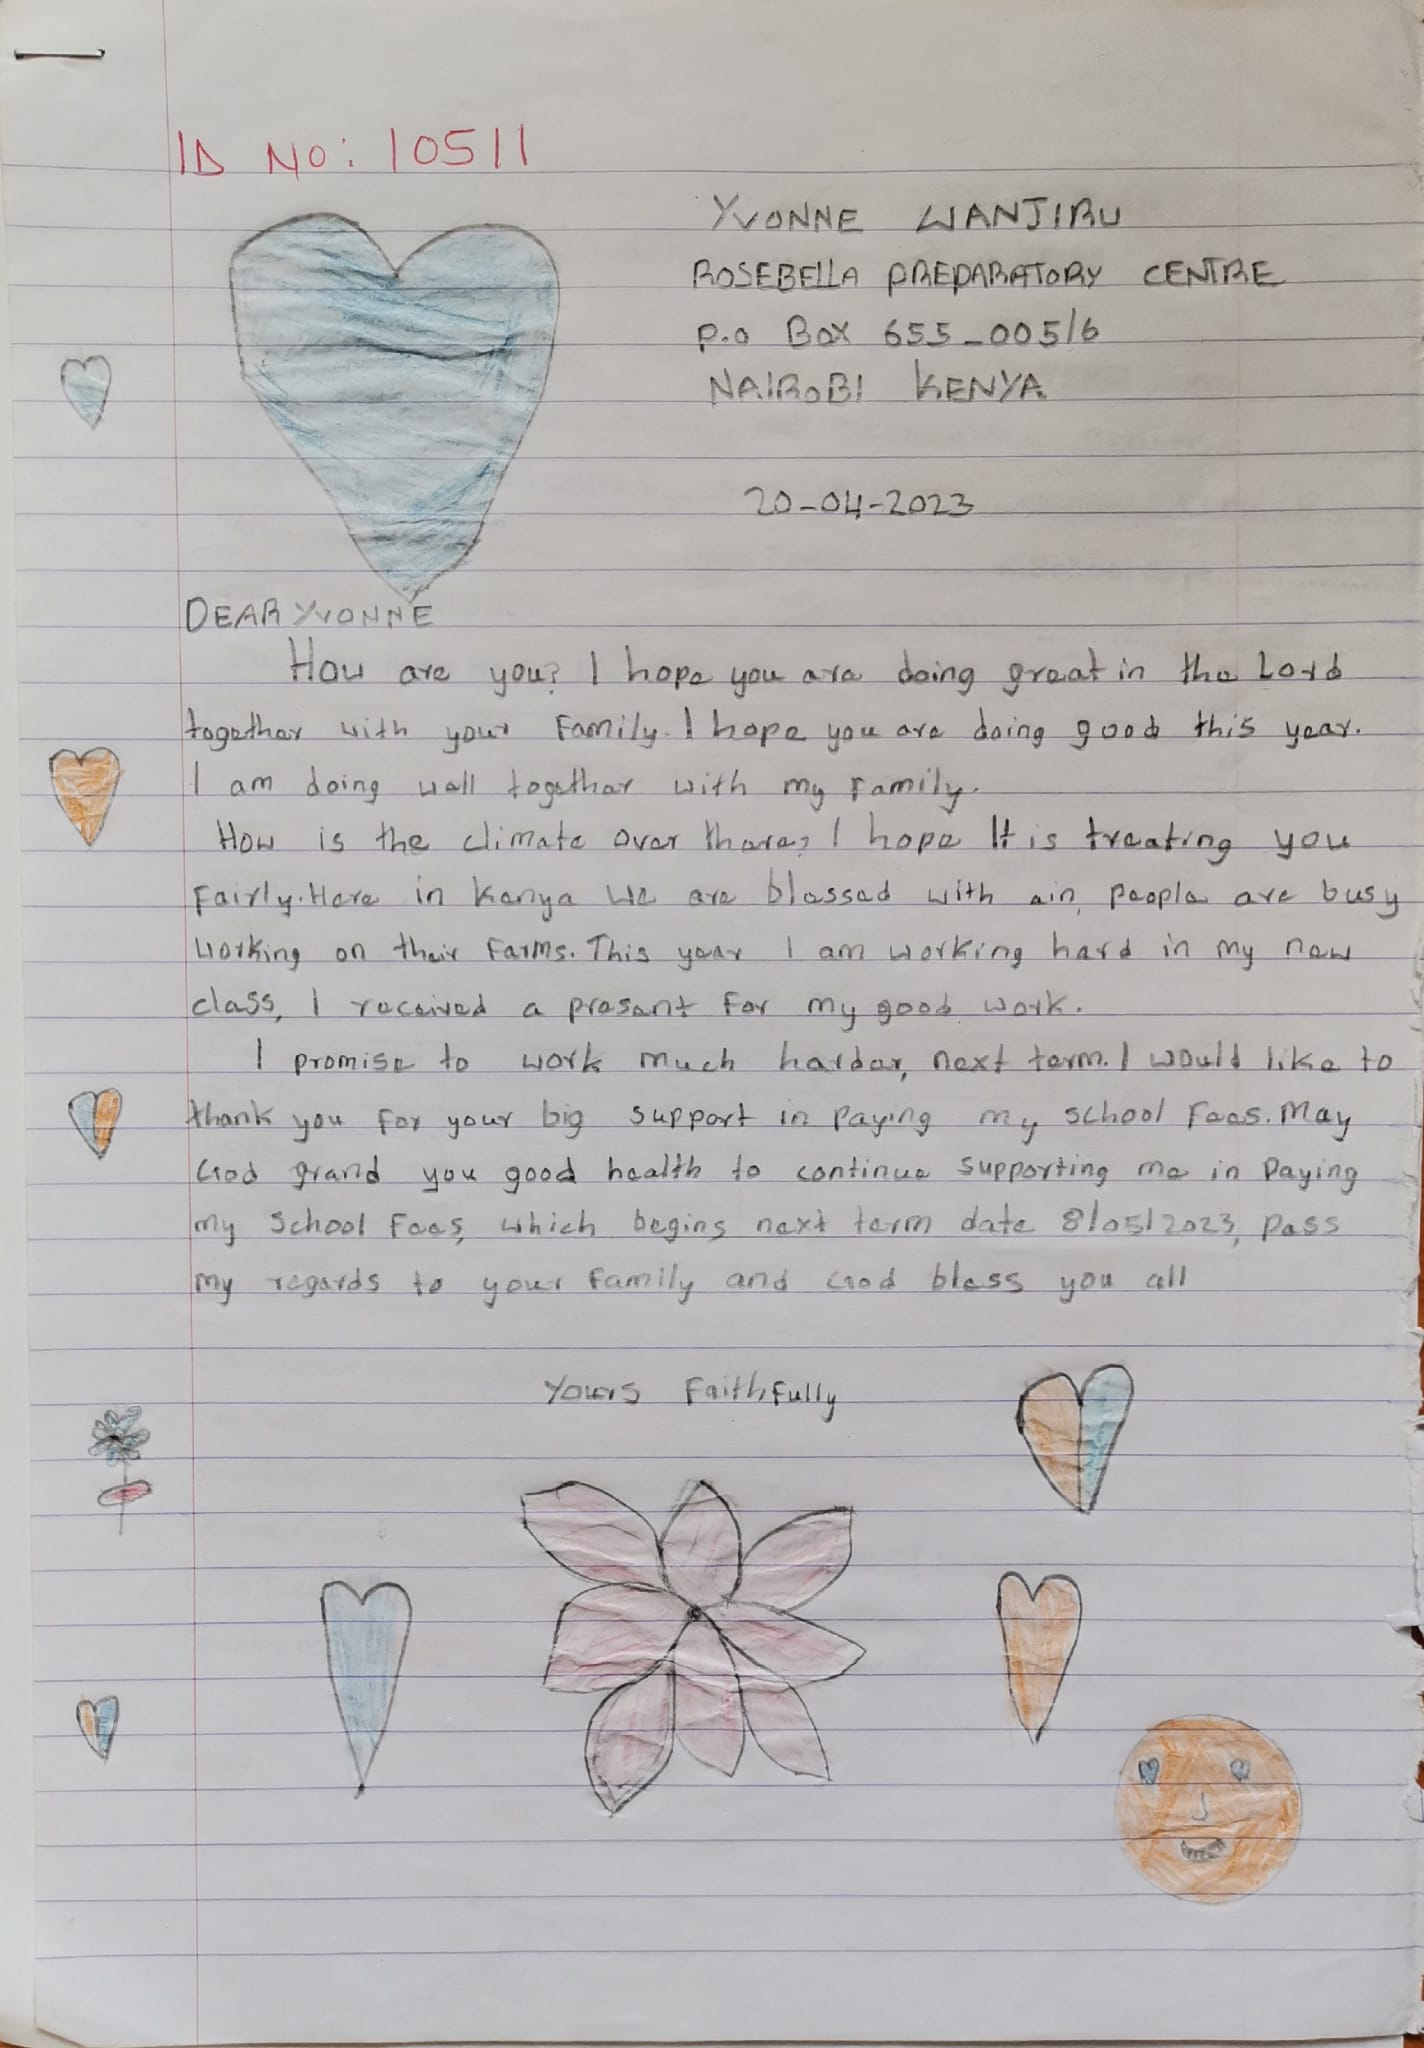 ID NO: 10511
YVONNE WANJIRU
ROSEBELLA PREPARATORY CENTRE
P.o Box 655_00516
NAIROBI KENYA
20-04-2023
DEAR YVONNE
How are you? I hope you are doing great in the Lord
together with your Family. I hope you are doing good this year.
I am doing well together with my Family.
How is the climate over there? I hope It is treating you
Fairly. Here in Kenya We are blessed with ain, people are busy
Working on their Farms. This year I am working hard in my new
class, I received a present For my good work.
I promise to work much harder, next term. I would like to
thank you For your big support in paying my school Fees. May
God grand you good health to continue supporting me in paying
my School Fees, which begins next term date 8/05/2023, pass
my regards to your Family and God bless you all
Yours Faithfully